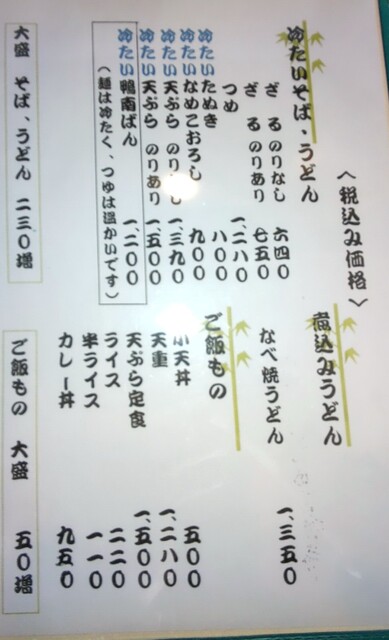 〈税込み価格〉
冷たいそば、うどん
ざる のりなし 六四〇
ざる のりあり 七五〇
つめ 一、二八〇
冷たいたぬき 八〇〇
冷たいなめこおろし 九〇〇
冷たい天ぷら のりなし 一、三九〇
冷たい天ぷら のりあり 一、五〇〇
冷たい鴨南ばん 一、二〇〇
（麺は冷たく、つゆは温かいです）
大盛 そば、うどん 二三〇増
煮込みうどん
なべ焼うどん 一、三五〇
ご飯もの
小天丼 五〇〇
天重 一、二八〇
天ぷら定食 一、五〇〇
ライス 二二〇
半ライス 一一〇
カレー丼 九五〇
ご飯もの 大盛 五〇増